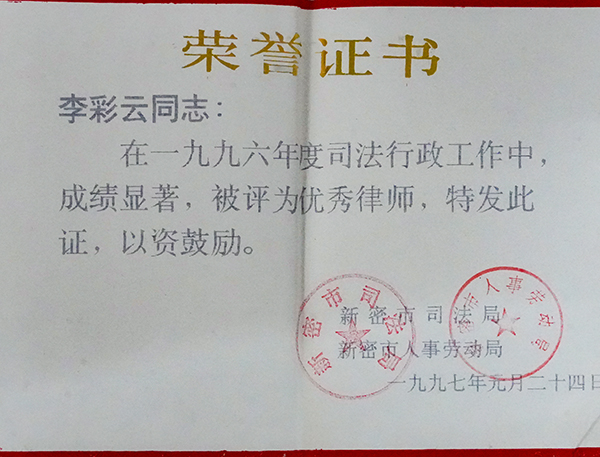 荣誉证书
李彩云同志：
在一九九六年度司法行政工作中，
成绩显著，被评为优秀律师，特发此
证，以资鼓励。
新密市司法局
新密市人事劳动局
一九九七年元月二十四日
新密市司法局
密市人事劳动局